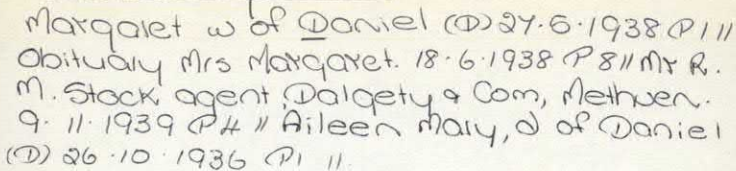 Margaret w of Daniel (D) 27.6.1938 P1 //
Obituary Mrs Margaret. 18.6.1938 P8 // Mr R.
M. Stock agent, Dalgety & Com, Methven.
9.11.1939 P4 // Aileen Mary, d of Daniel
(D) 26.10.1936 P1 //.